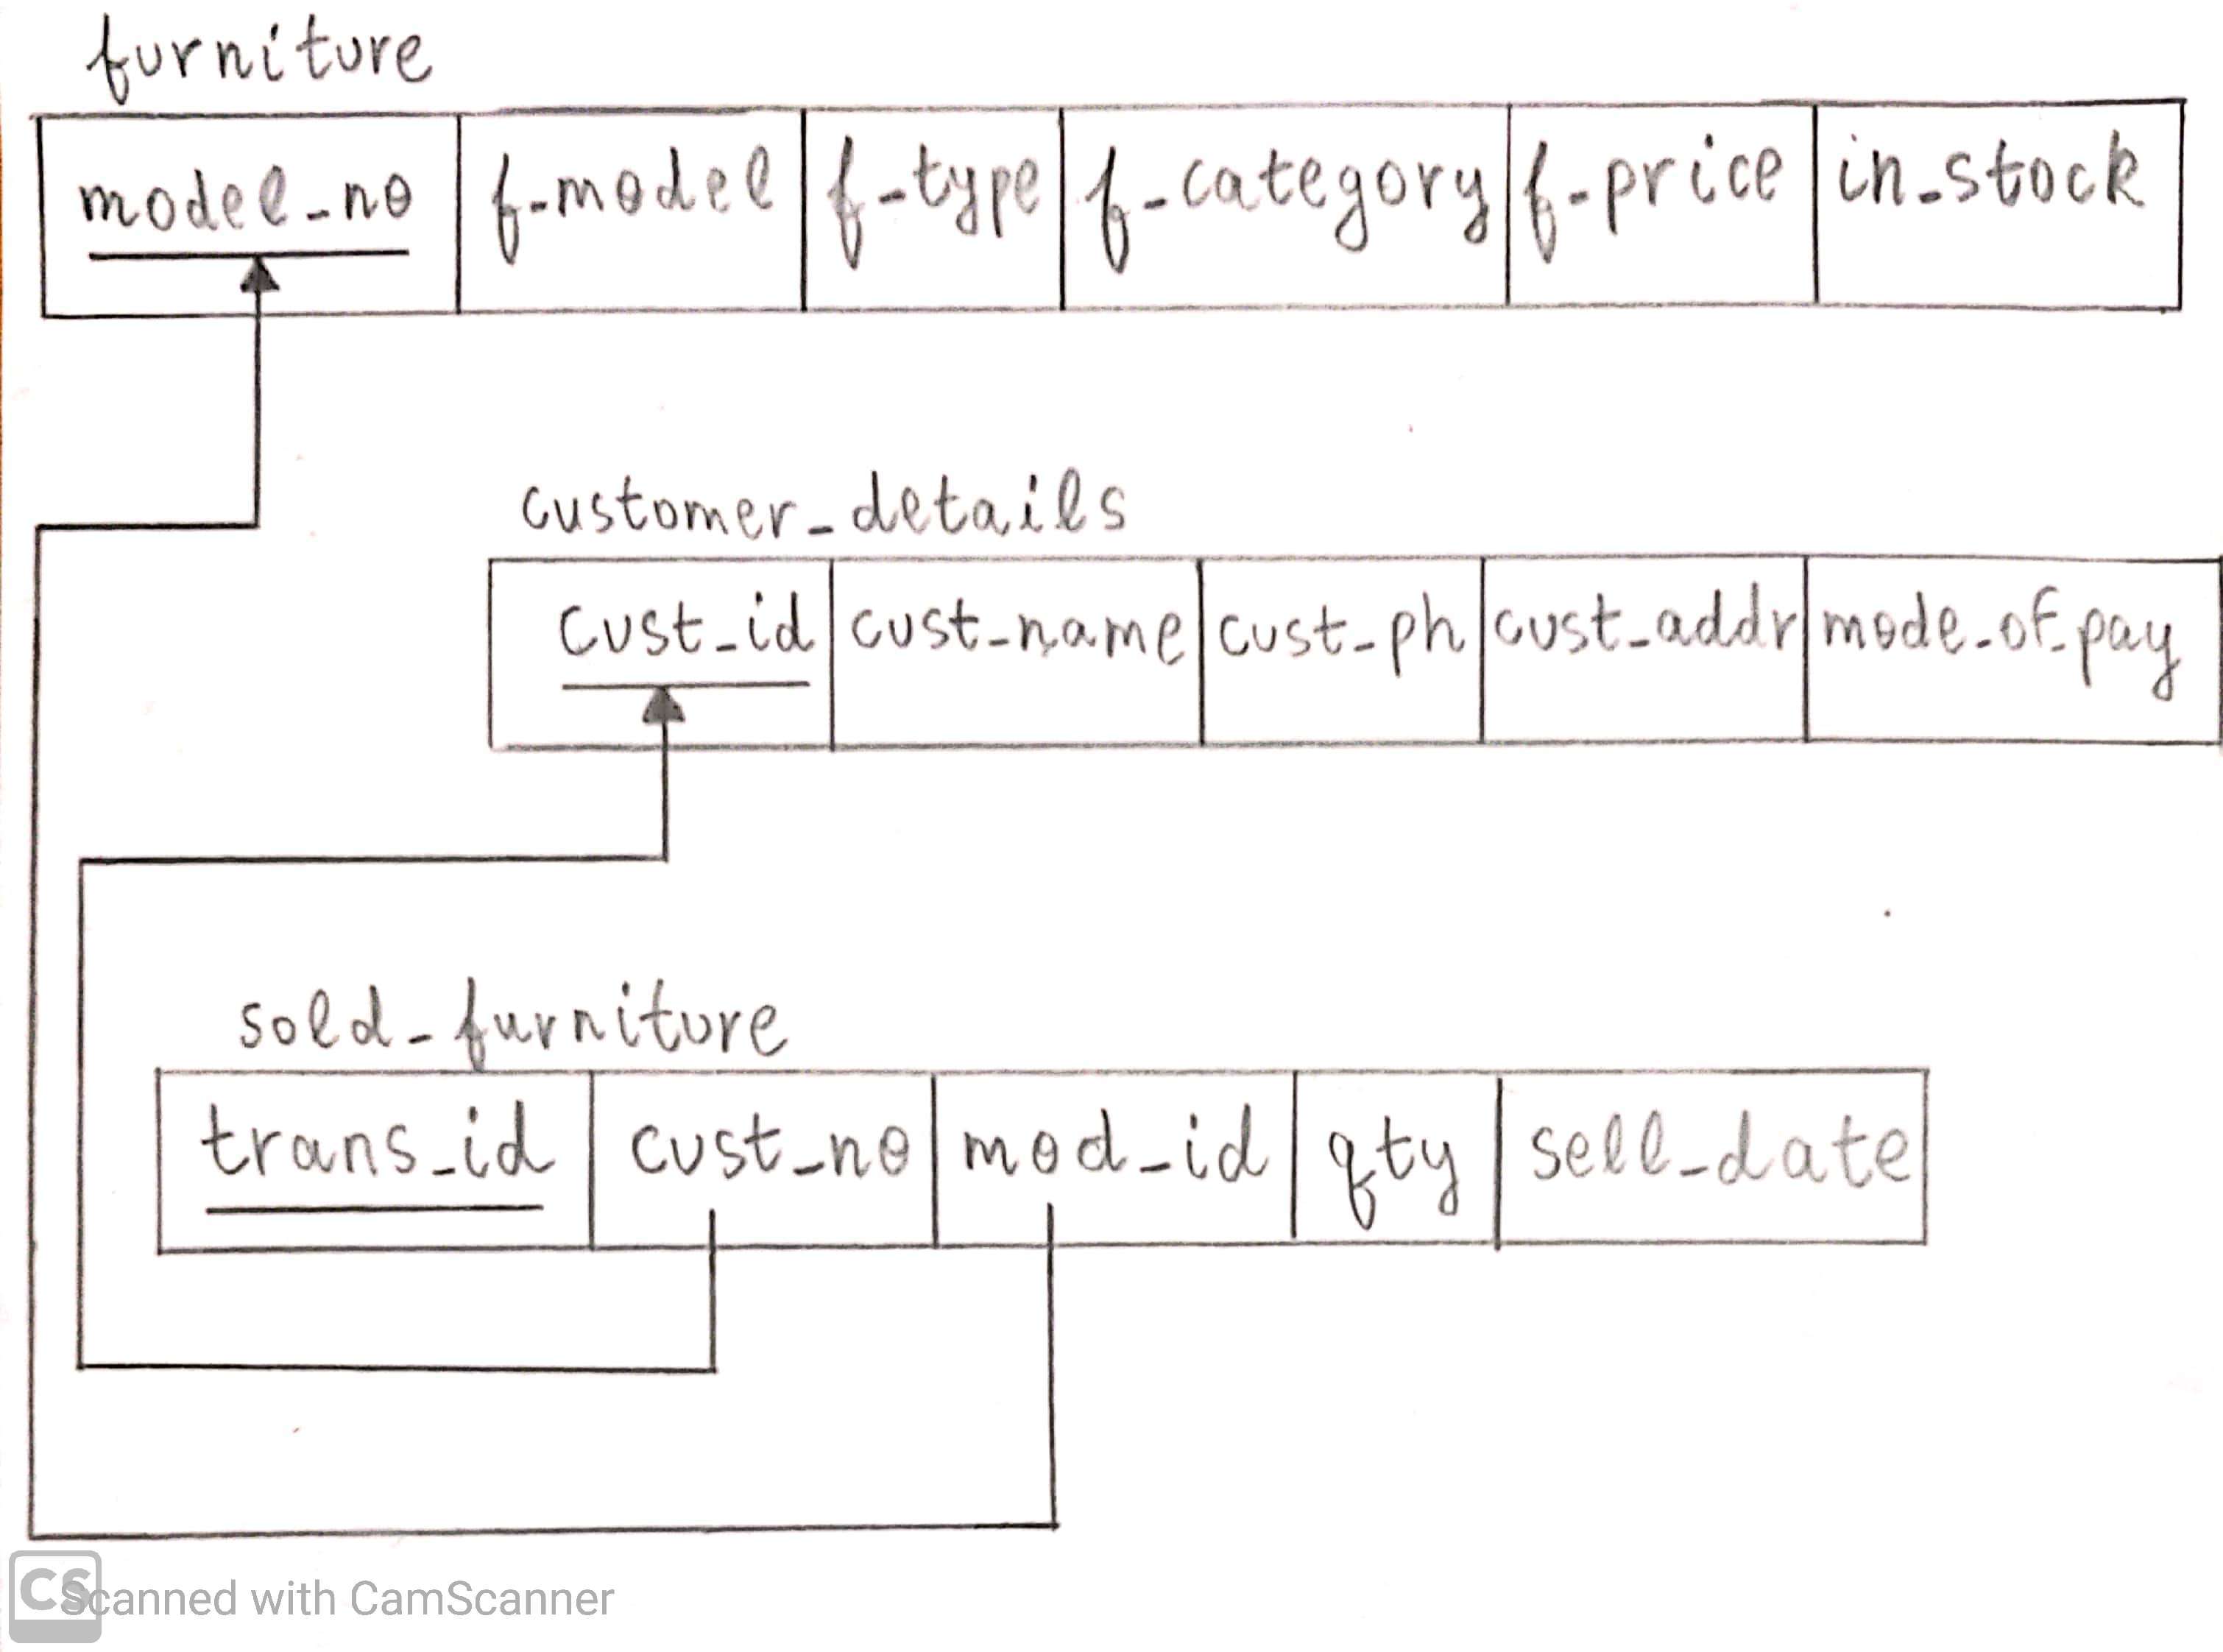 furniture
model_no f_model f_type f_category f_price in_stock
customer_details
cust_id cust_name cust_ph cust_addr mode_of_pay
sold_furniture
trans_id cust_no mod_id qty sell_date
CS Scanned with CamScanner